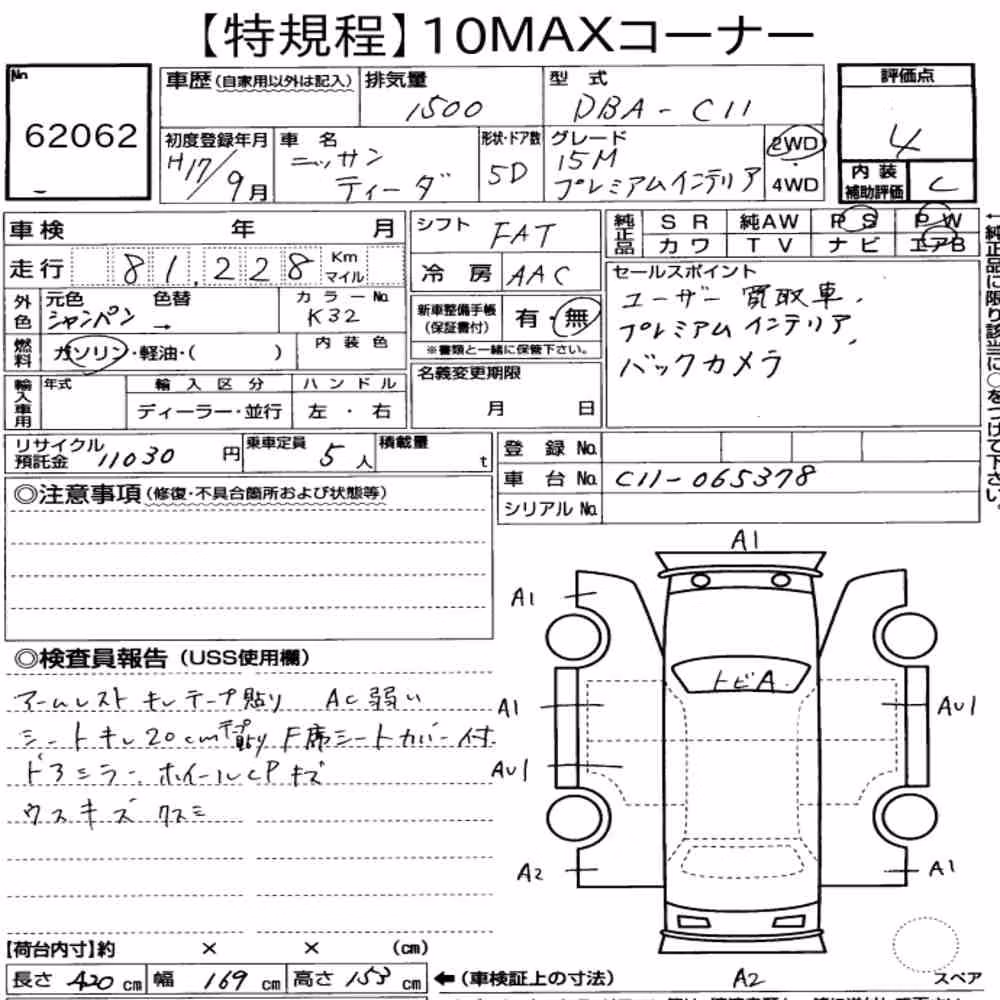 【特規程】10MAXコーナー
No.
62062
車歴(自家用以外は記入)
排気量
1500
型式
DBA-C11
評価点
4
内装補助評価
C
初度登録年月
H17/9月
車名
ニッサン
ティーダ
形状・ドア数
5D
グレード
15M
プレミアムインテリア
2WD
4WD
車検 年 月
走行 81,228 Km マイル
シフト
FAT
冷房 AAC
純正品
SR 純AW PS PW
カワ TV ナビ エアB
←純正品に限り該当に○をつけて下さい。
外色
元色 色替
シャンパン →
カラーNo.
K32
燃料
ガソリン・軽油・( )
内装色
新車整備手帳
(保証書付)
有・無
※書類と一緒に保管下さい。
セールスポイント
ユーザー買取車,
プレミアムインテリア,
バックカメラ
輸入車用
年式
輸入区分
ディーラー・並行
ハンドル
左・右
名義変更期限
月 日
リサイクル預託金 11030 円
乗車定員 5人
積載量 t
登録No.
車台No. C11-065378
シリアルNo.
◎注意事項(修復・不具合箇所および状態等)
◎検査員報告(USS使用欄)
アームレスト キレテープ貼り AC弱い
シートキレ20cmテープ貼り F席シートカバー付
ドアミラー、ホイールCPキズ
ウスキズ クスミ
A1
A1
トビA
A1
AU1
AU1
A2
A1
A2
スペア
【荷台内寸】約 × × (cm)
長さ 420 cm 幅 169 cm 高さ 153 cm
←(車検証上の寸法)